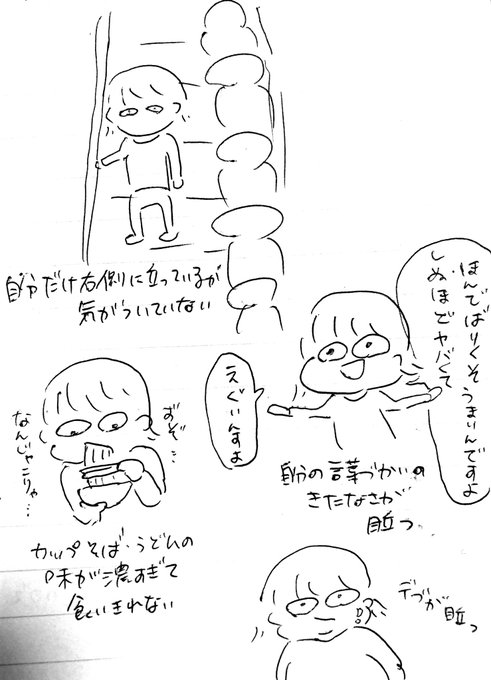 自分だけ右側に立っているが
気がついていない
ほんでばりくそうまいんですよ
しぬほどヤバくて
えぐいんすよ
自分の言葉づかいの
きたなさが
目立つ
なんじゃこりゃ…
カップそば・うどんの
味が濃すぎて
食いきれない
目立つ